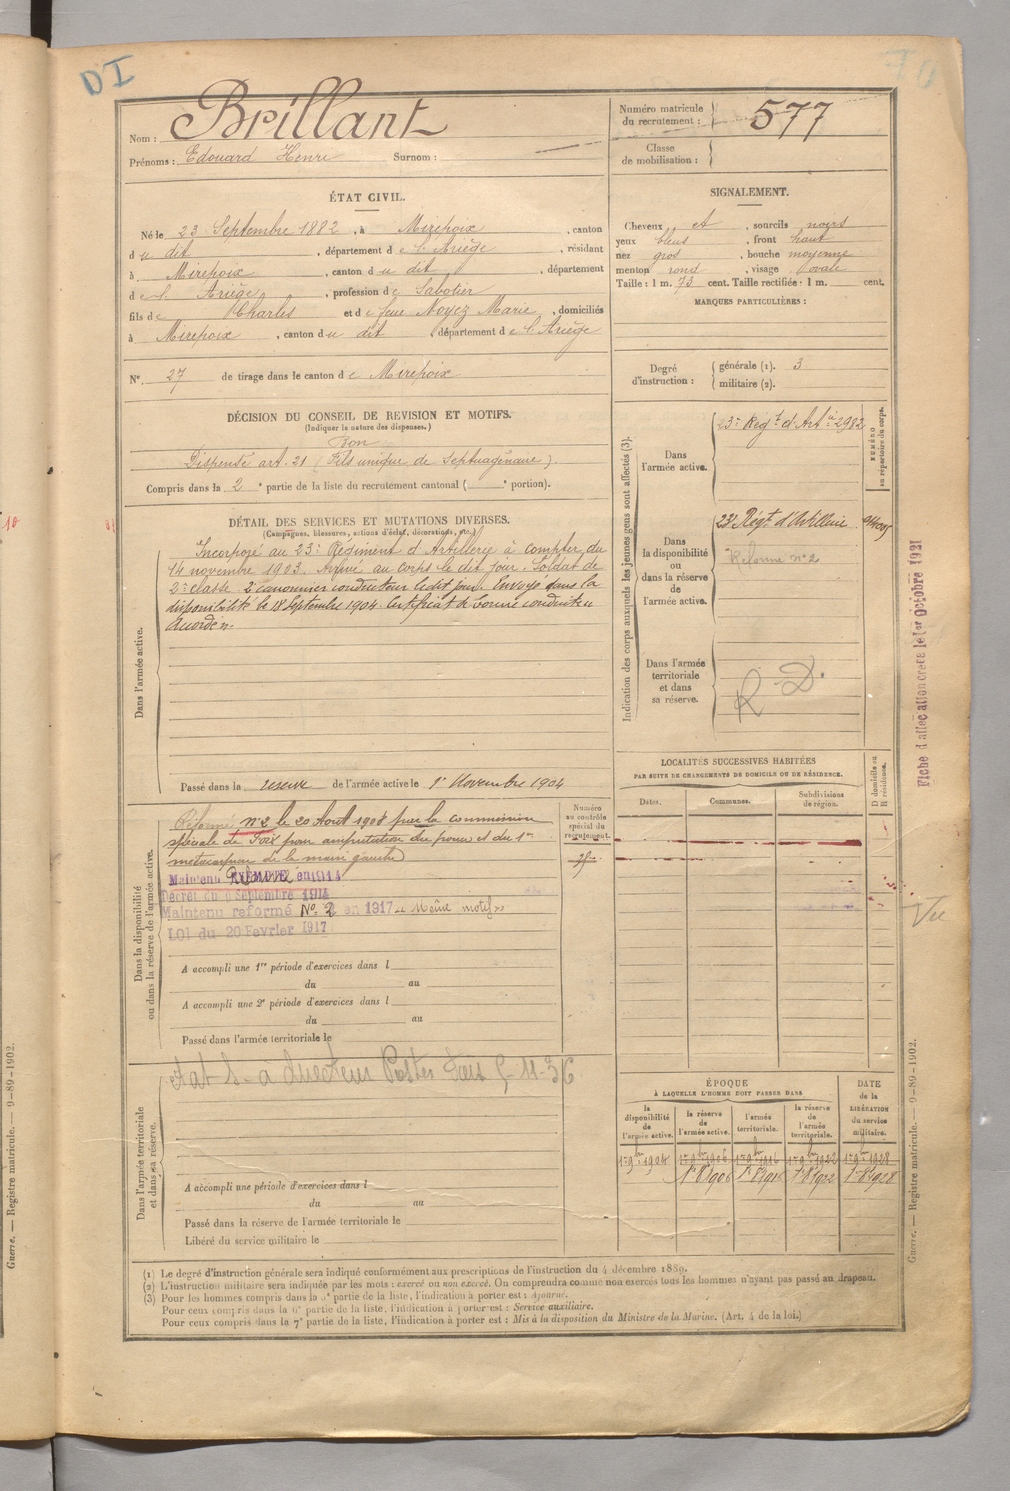 DI
70
Nom : Brillant
Prénoms : Edouard Henri Surnom :
Numéro matricule du recrutement : 577
Classe de mobilisation :
ÉTAT CIVIL.
Né le 23 Septembre 1882, à Mirepoix, canton
du dit, département de l'Ariège, résidant
à Mirepoix, canton du dit, département
de l'Ariège, profession de Sabotier
fils de Charles et de feue Noyez Marie, domiciliés
à Mirepoix, canton du dit, département de l'Ariège
N° 27 de tirage dans le canton de Mirepoix
DÉCISION DU CONSEIL DE REVISION ET MOTIFS.
(Indiquer la nature des dispenses.)
Bon
Dispensé art. 21 (Fils unique de Septuagénaire).
Compris dans la 2e partie de la liste du recrutement cantonal ( e portion).
SIGNALEMENT.
Cheveux et, sourcils noirs
yeux bleus, front haut
nez gros, bouche moyenne
menton rond, visage ovale
Taille : 1 m. 73 cent. Taille rectifiée : 1 m. cent.
MARQUES PARTICULIÈRES :
Degré d'instruction :
générale (1). 3
militaire (2).
DÉTAIL DES SERVICES ET MUTATIONS DIVERSES.
(Campagnes, blessures, actions d'éclat, décorations, etc.)
Dans l'armée active.
Incorporé au 23e Régiment d'Artillerie à compter du
14 novembre 1903. Arrivé au corps le dit jour. Soldat de
2e classe. 2e canonnier conducteur le dit jour. Envoyé dans la
disponibilité le 18 Septembre 1904. Certificat de bonne conduite
accordé.
Passé dans la réserve de l'armée active le 1er Novembre 1904
Indication des corps auxquels les jeunes gens sont affectés (3).
NUMÉRO au répertoire du corps.
Dans l'armée active.
23e Régt d'Artie 2982
Dans la disponibilité ou dans la réserve de l'armée active.
23e Régt d'Artillerie
Réformé n° 2
Dans l'armée territoriale et dans sa réserve.
R D.
Fiche d'affectation créée le 1er Octobre 1921
Dans la disponibilité ou dans la réserve de l'armée active.
Numéro au contrôle spécial du recrutement.
Réformé n°2 le 20 Août 1908 par la commission
spéciale de Foix pour amputation du pouce et du 1er
métacarpien de la main gauche
Maintenu Réformé en 1914
Décret du 9 Septembre 1914
Maintenu reformé N° 2 en 1917 Même motif
LOI du 20 Fevrier 1917
A accompli une 1re période d'exercices dans l
du au
A accompli une 2e période d'exercices dans l
du au
Passé dans l'armée territoriale le
LOCALITÉS SUCCESSIVES HABITÉES
PAR SUITE DE CHANGEMENTS DE DOMICILE OU DE RÉSIDENCE.
Dates. Communes. Subdivisions de région. D domicile ou R résidence.
Vu
Dans l'armée territoriale et dans sa réserve.
A accompli une période d'exercices dans l
du au
Passé dans la réserve de l'armée territoriale le
Libéré du service militaire le
ÉPOQUE
À LAQUELLE L'HOMME DOIT PASSER DANS
DATE de la LIBÉRATION du service militaire.
la disponibilité de l'armée active.
la réserve de l'armée active.
l'armée territoriale.
la réserve de l'armée territoriale.
1er 9bre 1904 1er 9bre 1906 1er 9bre 1916 1er 9bre 1922 1er 9bre 1928
1er 8bre 1906 1er 8bre 1916 1er 8bre 1922 1er 8bre 1928
(1) Le degré d'instruction générale sera indiqué conformément aux prescriptions de l'instruction du 4 décembre 1889.
(2) L'instruction militaire sera indiquée par les mots : exercé ou non exercé. On comprendra comme non exercés tous les hommes n'ayant pas passé au drapeau.
(3) Pour les hommes compris dans la 5e partie de la liste, l'indication à porter est : Ajourné.
Pour ceux compris dans la 6e partie de la liste, l'indication à porter est : Service auxiliaire.
Pour ceux compris dans la 7e partie de la liste, l'indication à porter est : Mis à la disposition du Ministre de la Marine. (Art. 4 de la loi.)
Guerre. — Registre matricule. — 9-89-1902.
Guerre. — Registre matricule. — 9-89-1902.